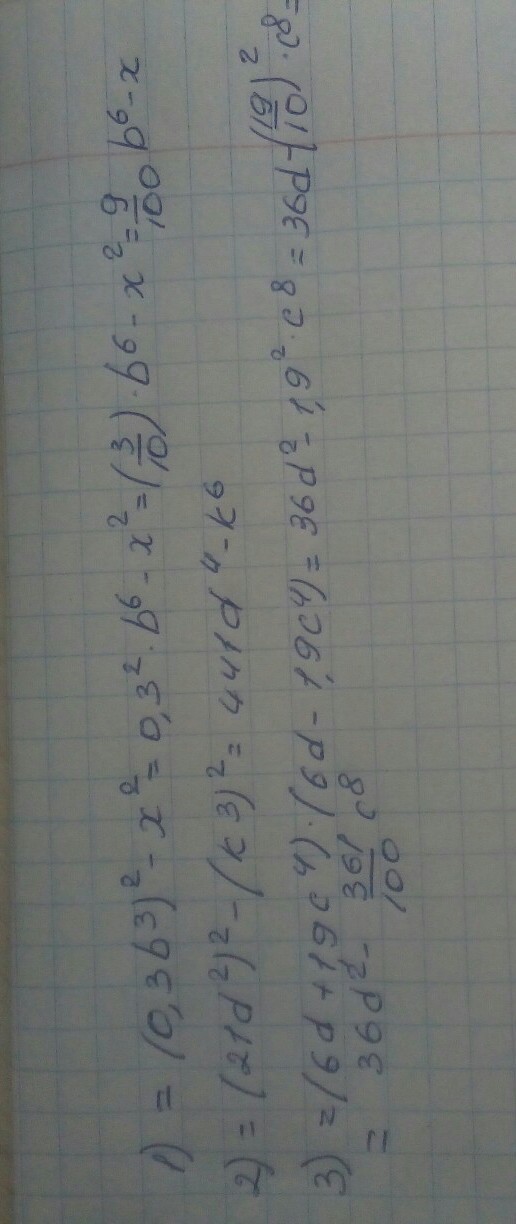 1) = (0,3b³)² - x² = 0,3² · b⁶ - x² = (3/10) · b⁶ - x² = 9/100 b⁶ - x
2) = (21d²)² - (k3)² = 441d⁴ - k⁶
3) = (6d + 1,9c⁴) · (6d - 1,9c⁴) = 36d² - 1,9² · c⁸ = 36d - (19/10)² · c⁸ =
= 36d² - 361/100 c⁸